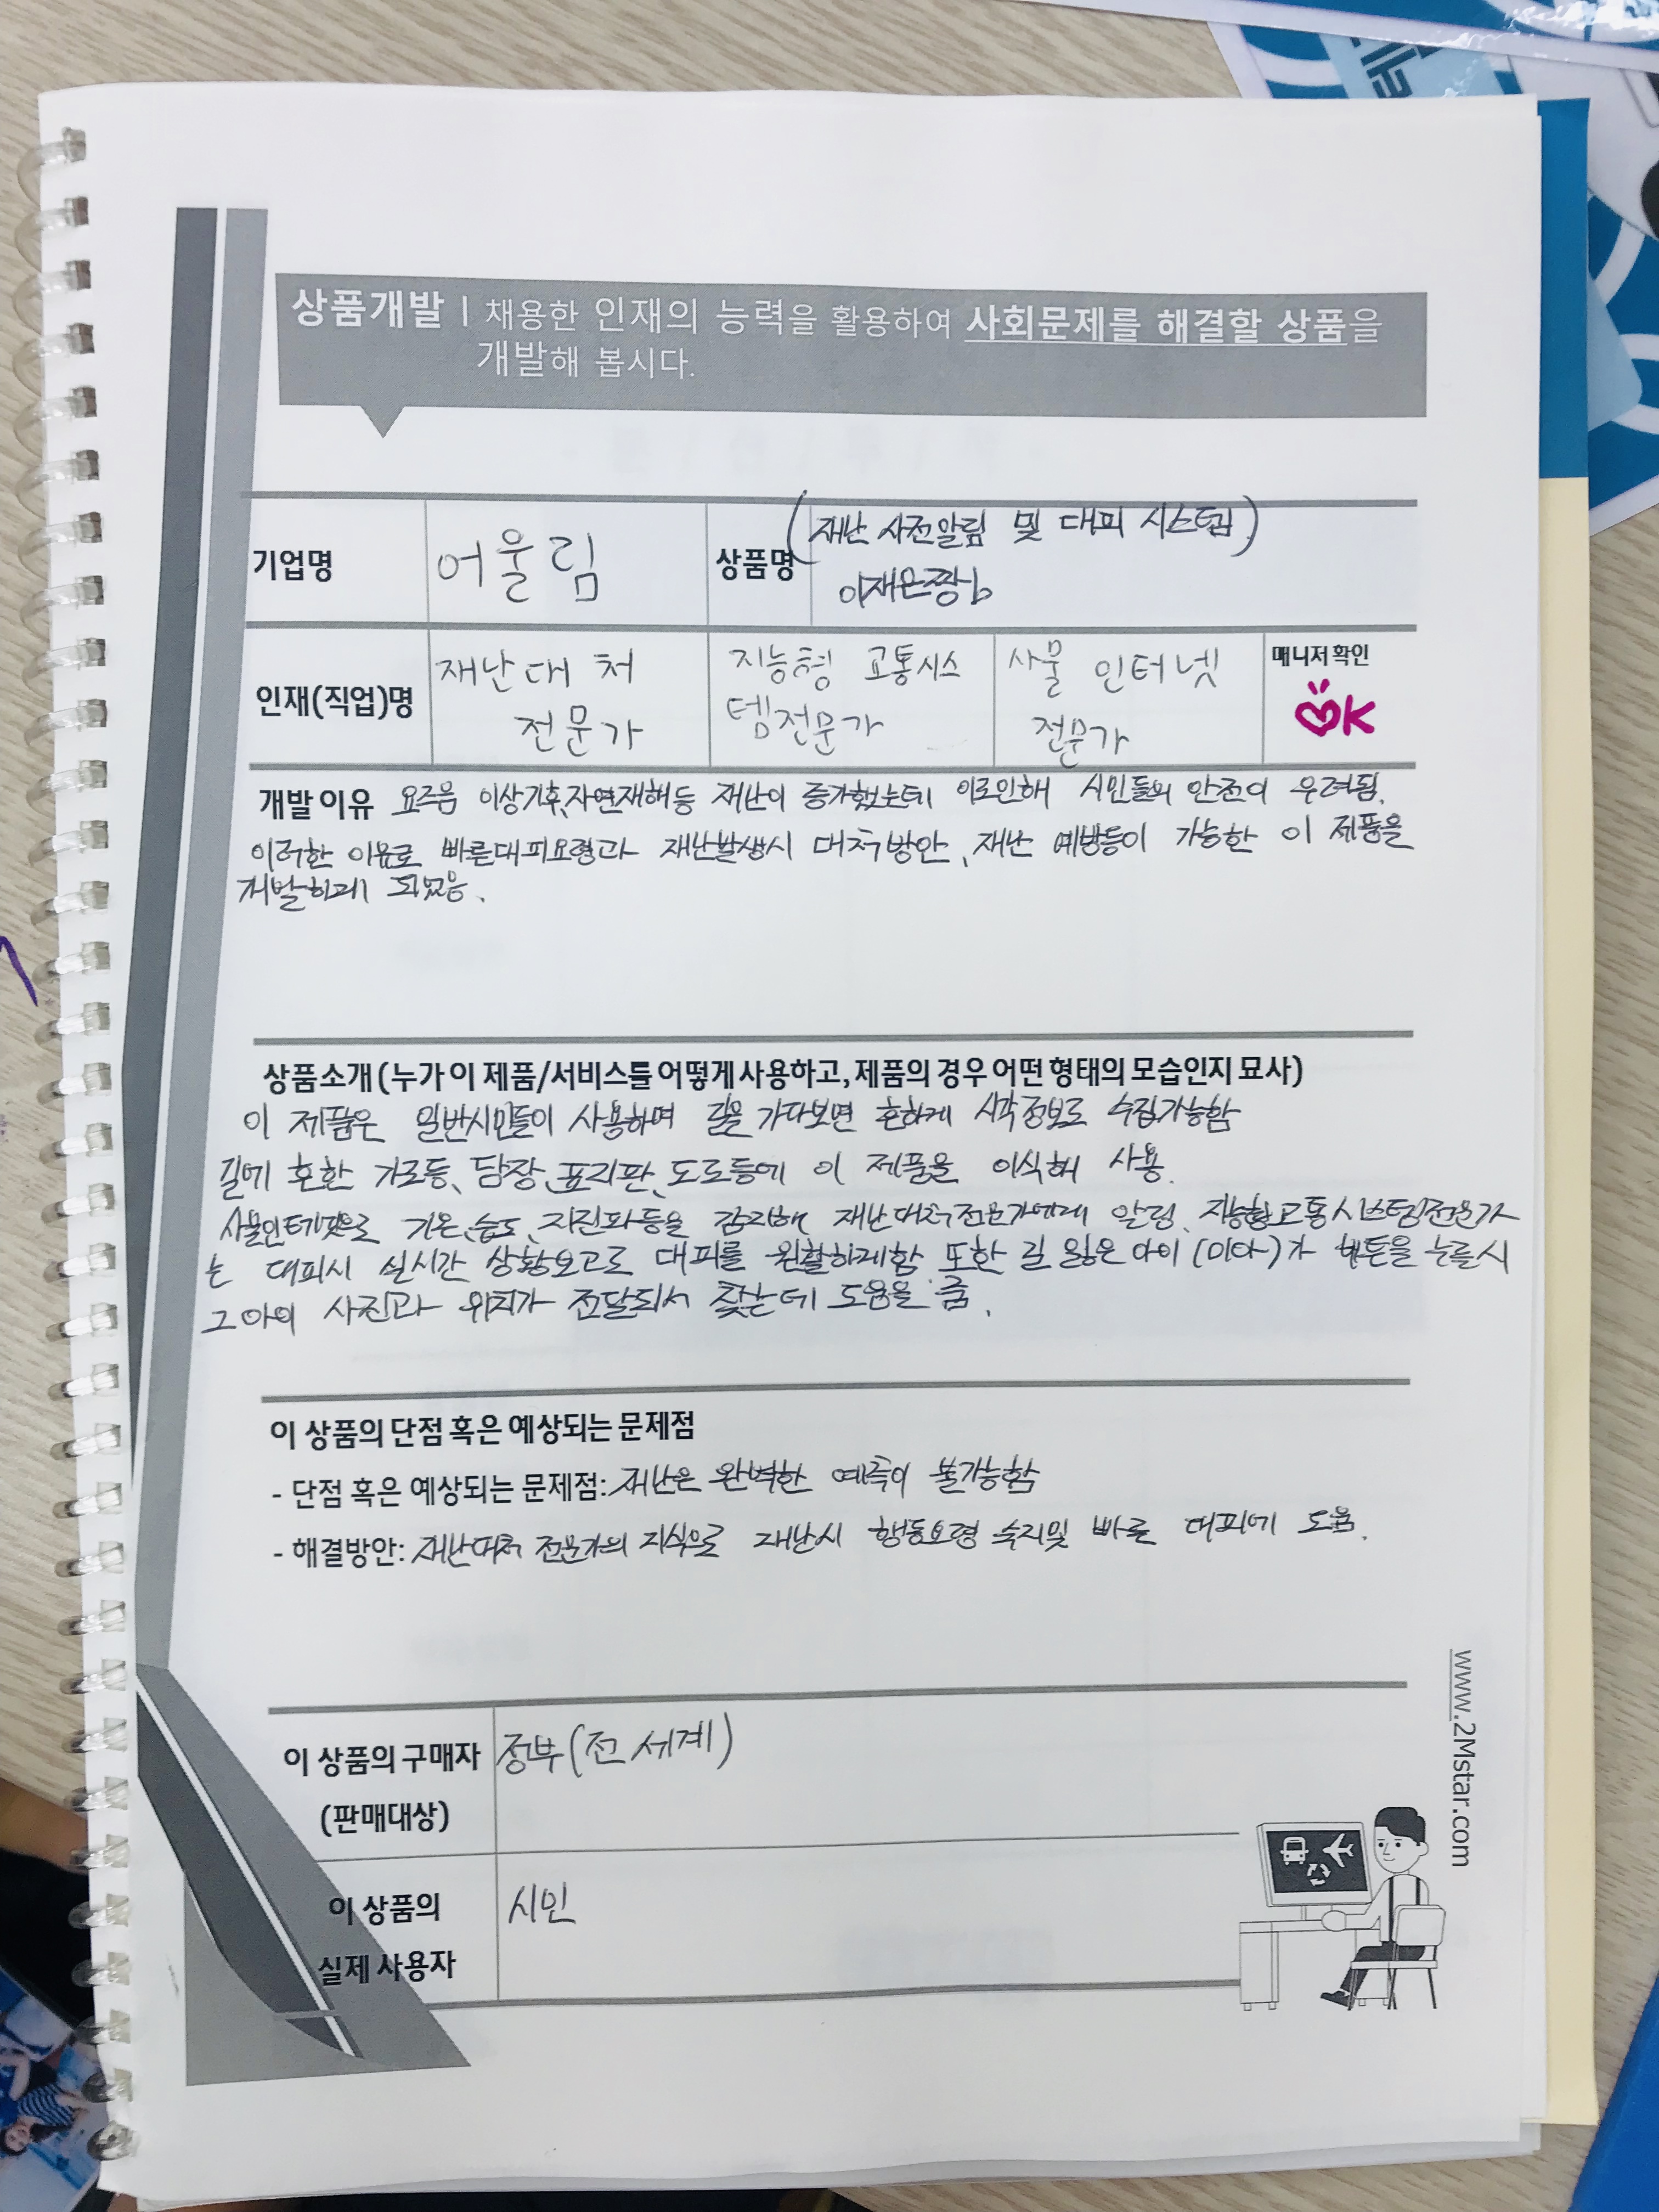 상품개발 | 채용한 인재의 능력을 활용하여 사회문제를 해결할 상품을
개발해 봅시다.
기업명
어울림
상품명
(재난 사전알림 및 대피 시스템)
이재은짱b
인재(직업)명
재난대처
전문가
지능형 교통시스
템전문가
사물 인터넷
전문가
매니저 확인
OK
개발 이유 요즈음 이상기후,자연재해등 재난이 증가했는데 이로인해 시민들의 안전이 우려됨.
이러한 이유로 빠른대피요령과 재난발생시 대처방안, 재난 예방등이 가능한 이 제품을
개발하게 되었음.
상품소개 (누가 이 제품/서비스를 어떻게 사용하고, 제품의 경우 어떤 형태의 모습인지 묘사)
이 제품은 일반시민들이 사용하며 길을 가다보면 흔하게 시각정보로 수집가능함
길에 흔한 가로등, 담장, 표지판, 도로등에 이 제품을 이식해 사용.
사물인터넷으로 기온, 습도, 지진파등을 감지해 재난대처전문가에게 알림, 지능형교통시스템전문가
는 대피시 실시간 상황보고로 대피를 원활하게함 또한 길 잃은 아이 (미아)가 버튼을 누를시
그 아이 사진과 위치가 전달되서 찾는데 도움을 줌.
이 상품의 단점 혹은 예상되는 문제점
- 단점 혹은 예상되는 문제점: 재난은 완벽한 예측이 불가능함
- 해결방안: 재난대처 전문가의 지식으로 재난시 행동요령 숙지및 빠른 대피에 도움.
이 상품의 구매자
(판매대상)
정부(전 세계)
이 상품의
실제 사용자
시민
www.2Mstar.com